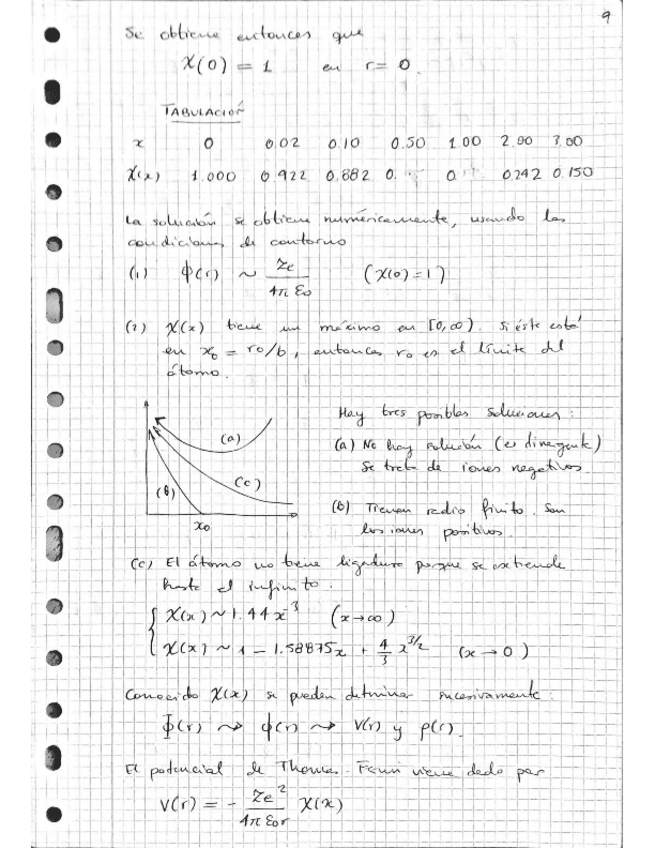 9
Se obtiene entonces que
χ(0) = 1 en r = 0.
TABULACIÓN
x 0 0.02 0.10 0.50 1.00 2.00 3.00
χ(x) 1.000 0.922 0.882 0. 0. 0.242 0.150
La solución se obtiene numéricamente, usando las
condiciones de contorno
(1) ϕ(r) ~ Ze / 4π ε0 (χ(0) = 1)
(2) χ(x) tiene un máximo en [0,∞). Si éste está
en x0 = r0/b, entonces r0 es el límite del
átomo.
(a)
(b)
(c)
x0
Hay tres posibles soluciones:
(a) No hay solución (es divergente)
Se trata de iones negativos.
(b) Tienen radio finito. Son
los iones positivos.
(c) El átomo no tiene ligadura porque se extiende
hasta el infinito.
{ χ(x) ~ 1.44 x^-3 (x → ∞)
χ(x) ~ 1 - 1.58875x + 4/3 x^3/2 (x → 0)
Conocido χ(x) se pueden determinar sucesivamente:
Φ(r) ⇝ ϕ(r) ⇝ V(r) y ρ(r).
El potencial de Thomas-Fermi viene dado por
V(r) = - Ze^2 / 4π ε0 r χ(x)